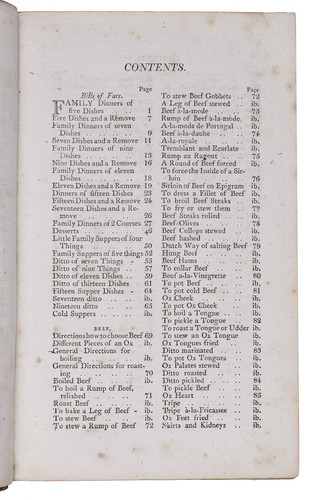 CONTENTS.
Page
Bills of Fare.
FAMILY Dinners of
five Dishes 1
Five Dishes and a Remove 7
Family Dinners of seven
Dishes . . . . . . 9
Seven Dishes and a Remove 11
Family Dinners of nine
Dishes . . . . . . 13
Nine Dishes and a Remove 16
Family Dinners of eleven
Dishes . . . . . . 18
Eleven Dishes and a Remove 19
Dinners of fifteen Dishes 23
Fifteen Dishes and a Remove 24
Seventeen Dishes and a Re-
move . . . . . . 26
Family Dinners of 2 Courses 27
Desserts . . . . . . 46
Little Family Suppers of four
Things . . . . . . 50
Family Suppers of five things 52
Ditto of seven Things - 55
Ditto of nine Things . . 57
Ditto of eleven Dishes . 59
Ditto of thirteen Dishes 61
Fifteen Supper Dishes . 64
Seventeen ditto . . . ib.
Nineteen ditto . . . 65
Cold Suppers . . . . ib.
BEEF.
Directions how to choose Beef 69
Different Pieces of an Ox ib.
General Directions for
boiling . . . . . ib.
General Directions for roast-
ing . . . . . . 70
Boiled Beef . . . . ib.
To boil a Rump of Beef,
relished . . . . . 71
Roast Beef . . . . ib.
To bake a Leg of Beef - ib.
To stew Beef . . . . ib.
To stew a Rump of Beef 72
Page
To stew Beef Gobbets . . 72
A Leg of Beef stewed . . ib.
Beef à-la-mode . . . . 73
Rump of Beef à-la-mode, ib.
A-la-mode de Portugal . . ib.
Beef à-la-daube . . . 74
A-la-royale . . . . ib.
Tremblant and Ecarlate . ib.
Rump au Ragout . . . 75
A Round of Beef forced ib.
To force the Inside of a Sir-
loin . . . . . . 76
Sirloin of Beef en Epigram ib.
To dress a Fillet of Beef ib.
To broil Beef Steaks . . ib.
To fry or stew them . . 77
Beef Steaks rolled . . ib.
Beef-Olives . . . . 78
Beef Collops stewed . . ib.
Beef hashed . . . . ib.
Dutch Way of salting Beef 79
Hung Beef . . . . ib.
Beef Hams . . . . ib.
To collar Beef . . . ib.
Beuf a-la-Vinegrette . . 80
To pot Beef . . . . ib.
To pot cold Beef . . . 81
Ox Cheek . . . . ib.
To pot Ox Cheek . . ib.
To boil a Tongue . . . ib.
To pickle a Tongue . . 82
To roast a Tongue or Udder ib.
To stew an Ox Tongue ib.
Ox Tongues fried . . . ib.
Ditto marinated . . . 83
To pot Ox Tongues . . ib.
Ox Palates stewed . . ib.
Ditto roasted . . . . ib.
Ditto pickled . . . . 84
To pickle Beef . . . ib.
Ox Heart . . . . 85
Tripe . . . . . ib.
Tripe à-la-Fricassee . . ib.
Ox Feet fried . . . . ib.
Skirts and Kidneys . . ib.